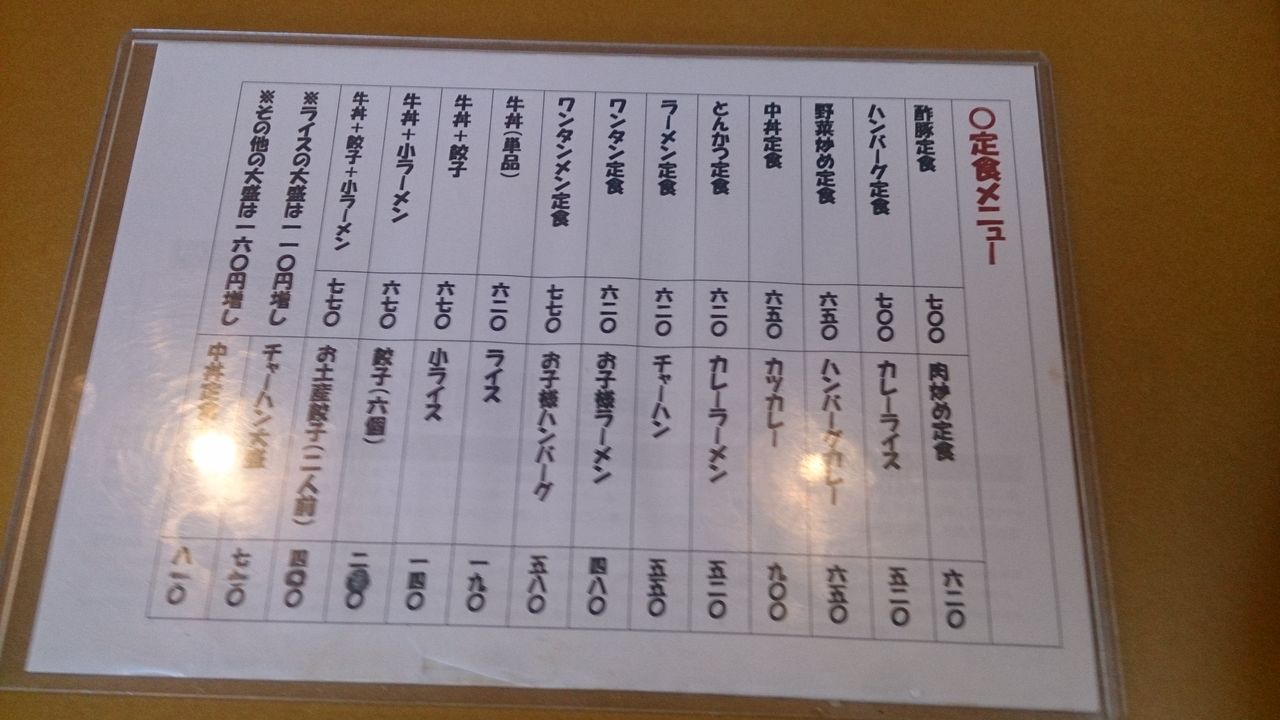 〇定食メニュー
酢豚定食 七〇〇
ハンバーグ定食 七〇〇
野菜炒め定食 六五〇
中丼定食 六五〇
とんかつ定食 六二〇
ラーメン定食 六二〇
ワンタン定食 六二〇
ワンタンメン定食 七七〇
牛丼(単品) 六二〇
牛丼+餃子 六七〇
牛丼+小ラーメン 六七〇
牛丼+餃子+小ラーメン 七七〇
※ライスの大盛は一一〇円増し
※その他の大盛は一六〇円増し
肉炒め定食 六二〇
カレーライス 五二〇
ハンバーグカレー 六五〇
カツカレー 九〇〇
カレーラーメン 五二〇
チャーハン 五五〇
お子様ラーメン 四八〇
お子様ハンバーグ 五八〇
ライス 一九〇
小ライス 一四〇
餃子(六個)
お土産餃子(二人前)
チャーハン大盛
中丼定食 八一〇